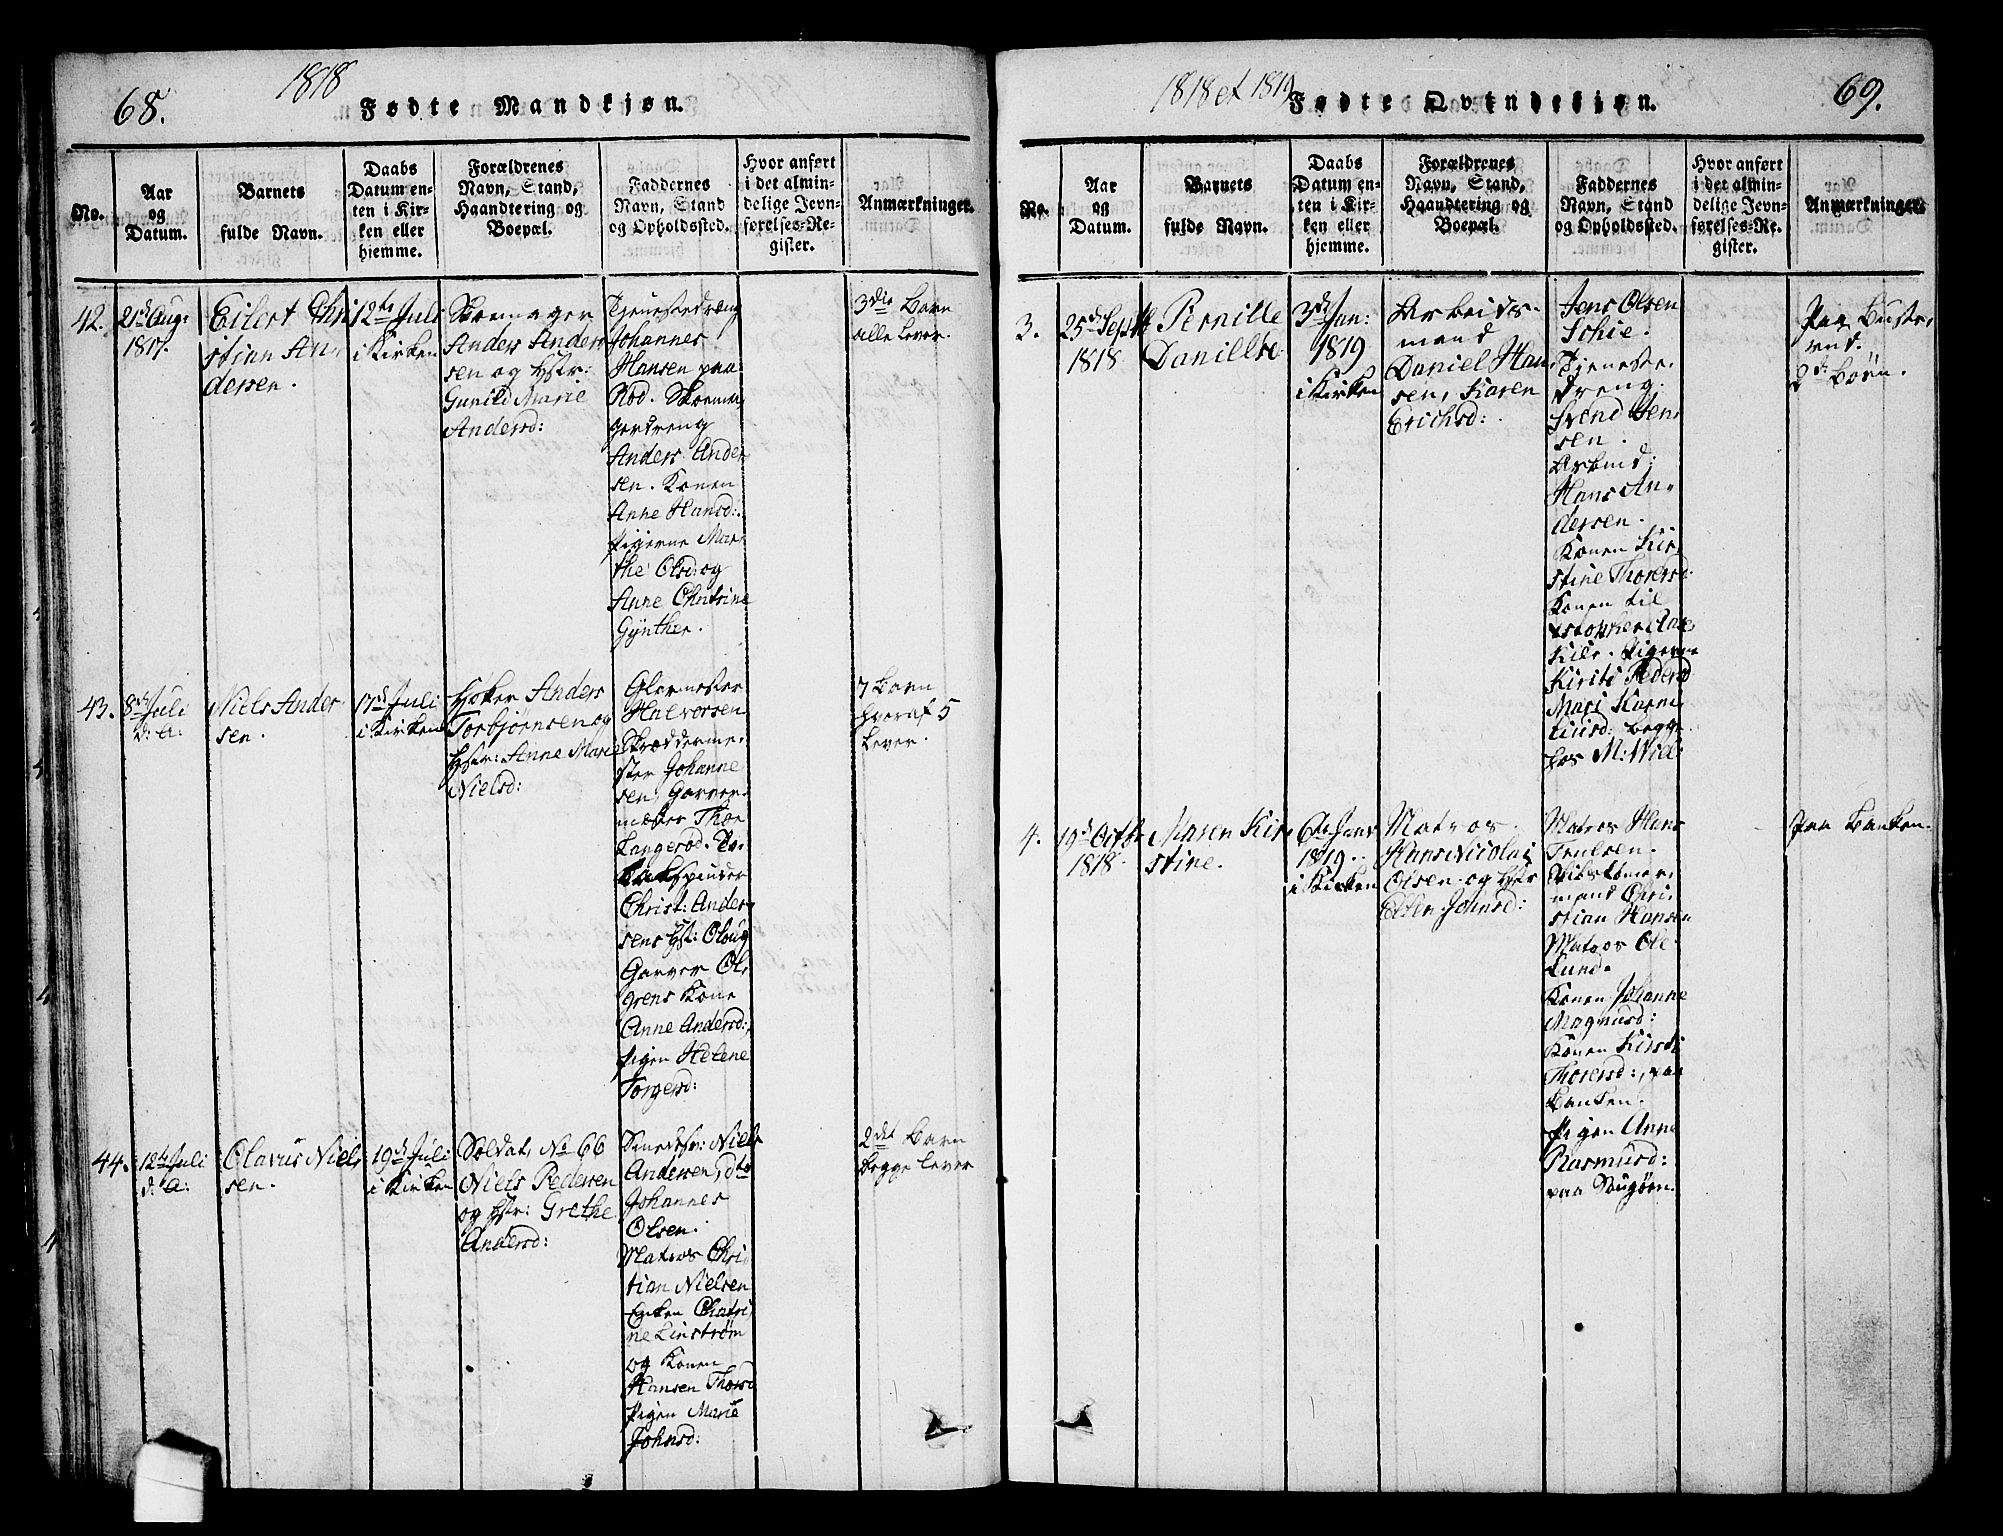 68.
1818
Fødte Mandkjøn.
No.
Aar
og
Datum.
Barnets
fulde Navn.
Daabs
Datum en-
ten i Kir-
ken eller
hjemme.
Forældrenes
Navn, Stand,
Haandtering og
Boepæl.
Faddernes
Navn, Stand
og Opholdssted.
Hvor anført
i det almin-
delige Jevn-
førelses-Re-
gister.
Anmærkninger.
42.
21d Aug:
1817.
Eilert Chri
stian An,
dersen.
12te Juli
i Kirken
Skomager
Anders Anders
sen og Hstr:
Gunild Marie
Andersd:
Tjenestedreng
Johannes
Hansen paa
Rød. Skoma,
gerdreng
Anders Ander
sen. Konen
Anne Hansd:
Pigerne Mar
the Olsd: og
Anne Chatrine
Gÿnther.
3die Barn
alle lever.
43.
8de Juli
d: a:
Niels Ander
sen.
17d Juli
i Kirken
Høker Anders
Torbjørnsen og
Hstr: Anne Marie
Nielsd:
Glarmester
Halvorsen
Skrædderme,
ster Johanne
sen, Garver,
mester Thor
Langerød.
Christ: Ander,
sens Hst:
Garver Ol,
grens Kone
Anne Andersd:,
Pigen Helene
Torgersd:
7 Barn
hvoraf 5
lever.
44.
12te Juli
d: a:
Olavus Niels
sen.
19d Juli
i Kirken
Soldat, No 66
Niels Pedersen
og Hstr: Grethe
Andersd:
Smedsv: Niels
Andersen, dto
Johannes
Olsen.
Matros Chri,
tian Nielsen
Enken Chatri
ne Linstrøm
og Konen
Hansen Thorsd
Pigen Marie
Johnsd:
2det Barn
begge lever
1818 et 1819
Fødte Qvindekjøn.
69.
No.
Aar
og
Datum.
Barnets
fulde Navn.
Daabs
Datum en-
ten i Kir-
ken eller
hjemme.
Forældrenes
Navn, Stand,
Haandtering og
Boepæl.
Faddernes
Navn, Stand
og Opholdssted.
Hvor anført
i det almin-
delige Jevn-
førelses-Re-
gister.
Anmærkninger.
3.
25d Septb
1818
Pernille
Danielse
3d Jan:
1819
i Kirken
Arbeids-
mand
Daniel Han
sen, Karen
Erichsd:
Jens Olsen
Schie.
Tjeneste,
dreng.
Svend Jen,
sen.
Arbmd:
Hans An,
dersen.
Konen Kir,
stine Thorersd:
Konen til
Pigerne
Kirsti Pedersd
Mari Karn
begge
hos M: Wild
Paa Buste,
rud.
2de Børn.
4.
19d Octbr
1818
Maren Kir,
stine.
6te Janr
1819.
i Kirken
Matros
Hans Nicolai
Olsen og Hstr
Ellen Johnsd:
Matros Hans
Truelsen.
Christian Hansen
Matros Ole
Lund.
Konen Johanne
Magnusd:
Konen Kirsti
Thorersd:, paa
Banken.
Pigen Anne
Rasmusd:
paa Sougøen.
Paa Banken.